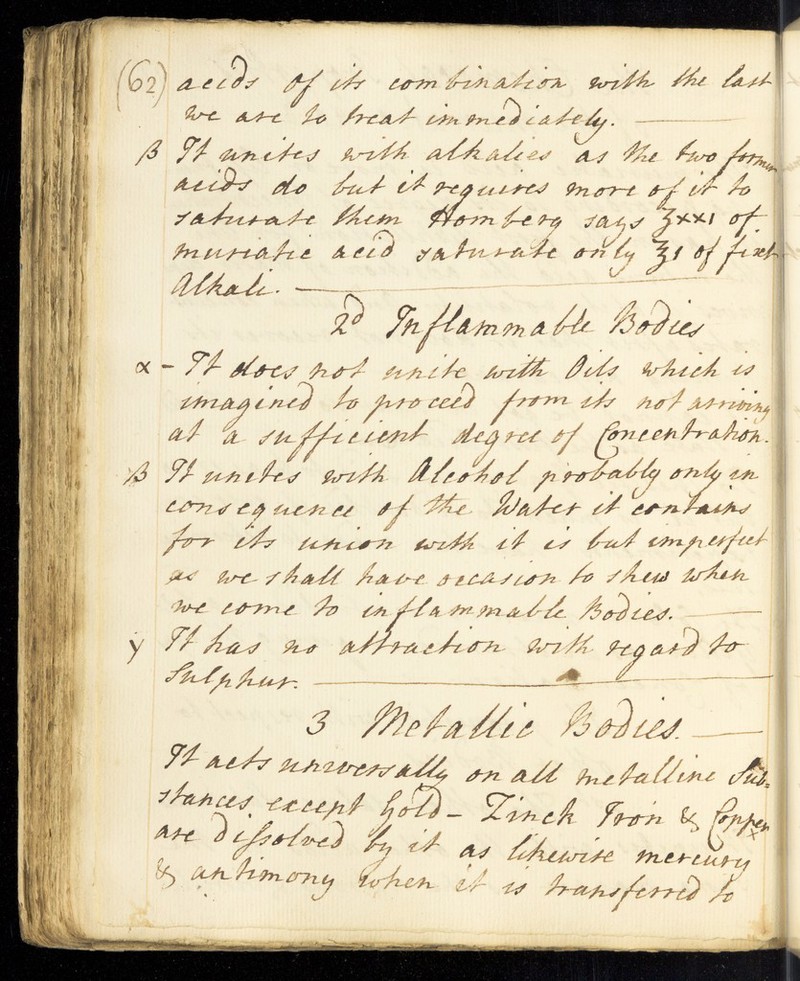 (62) acids of its combination with the last
we are to treat immediately. —
β It unites with alkalies as the two former
acids do but it requires more of it to
saturate them Homberg says ℥xxi of
muriatic acid saturate only ℥i of fixt
Alkali. —
2d Inflammable Bodies
α - It does not unite with Oils which is
imagined to proceed from its not arriving
at a sufficient degree of Concentration.
β It unites with Alcohol probably only in
consequence of the Water it contains
for its union with it is but imperfect
as we shall have occasion to shew when
we come to inflammable Bodies. —
γ It has no attraction with regard to
Sulphur. —
3 Metallic Bodies. —
It acts universally on all metalline Sub=
stances except Gold - Zinck Iron & Copper
are dissolved by it as likewise mercury
& antimony when it is transferred to